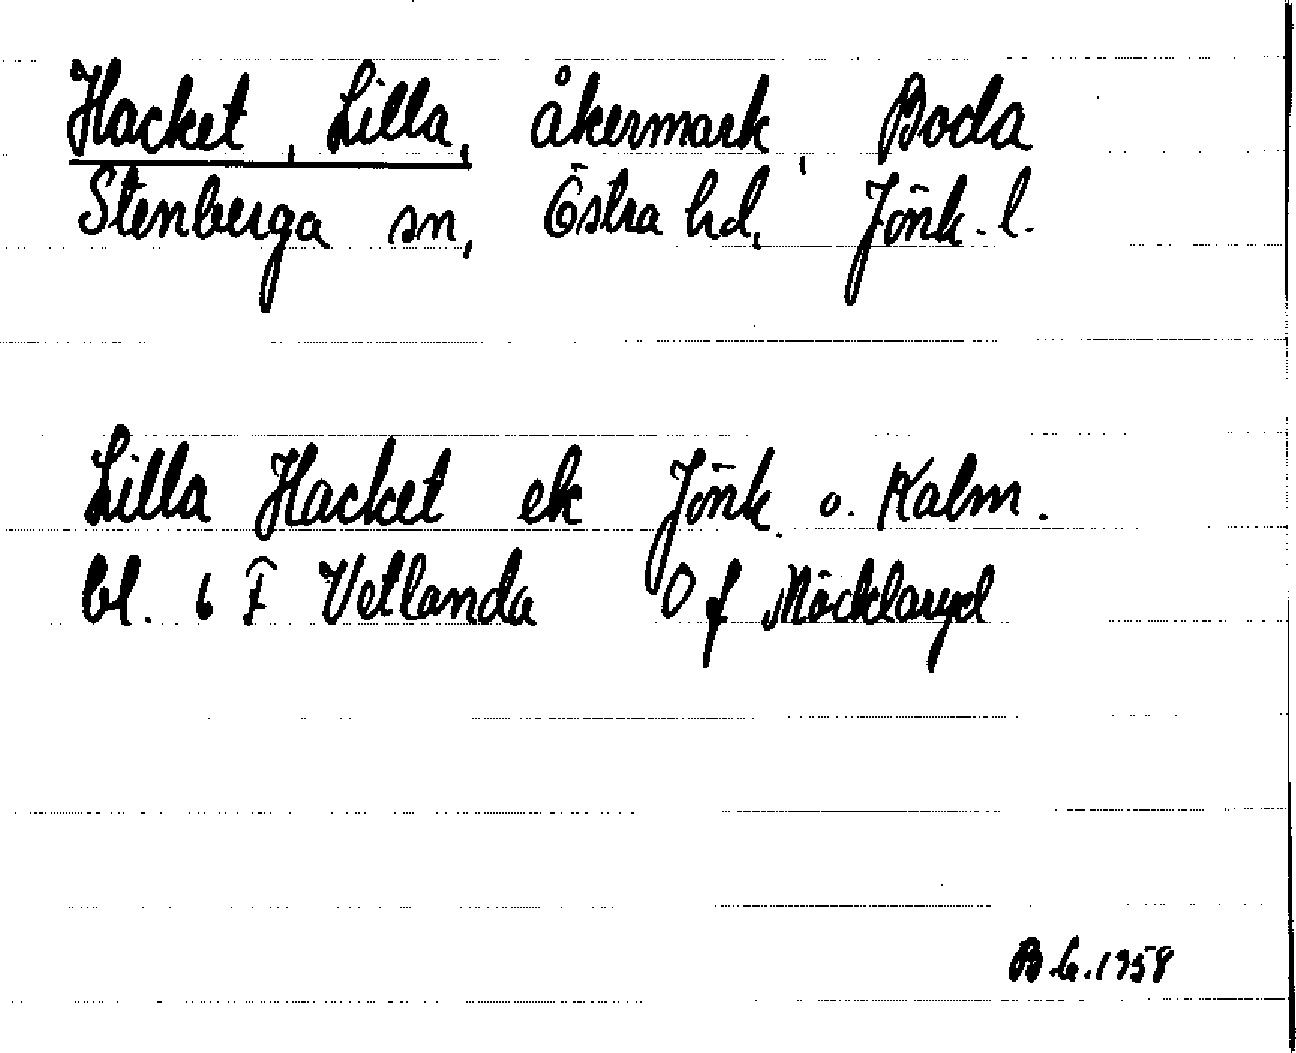 Hacket, Lilla, åkermark, Boda
Stenberga sn, Östra hd, Jönk. l.
Lilla Hacket ek Jönk. o. Kalm.
bl. 6 F Vetlanda Of Möcklaryd
B.G.1958